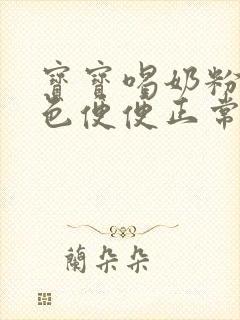 寶寶喝奶粉
色便便正常
蘭朵朵